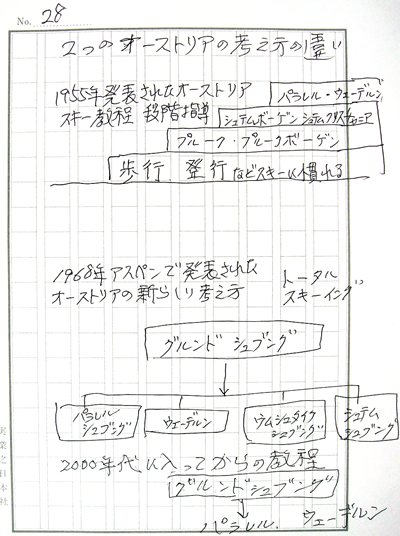 No. 28
2つのオーストリアの考え方の違い
1955年発表されたオーストリア
スキー教程 段階指導
パラレル・ウェーデルン
シュテムボーゲン シュテムクリスチャニア
プルーク・プルークボーゲン
歩行、登行などスキーに慣れる
1968年アスペンで発表された
オーストリアの新らしい考え方
トータル
スキーイング
グルンド シュブング
パラレル
シュブング
ウェーデルン
ウムシュタイク
シュブング
シュテム
シュブング
2000年代に入ってからの教程
グルンドシュブング
パラレル
ウェーデルン
実業之日本社